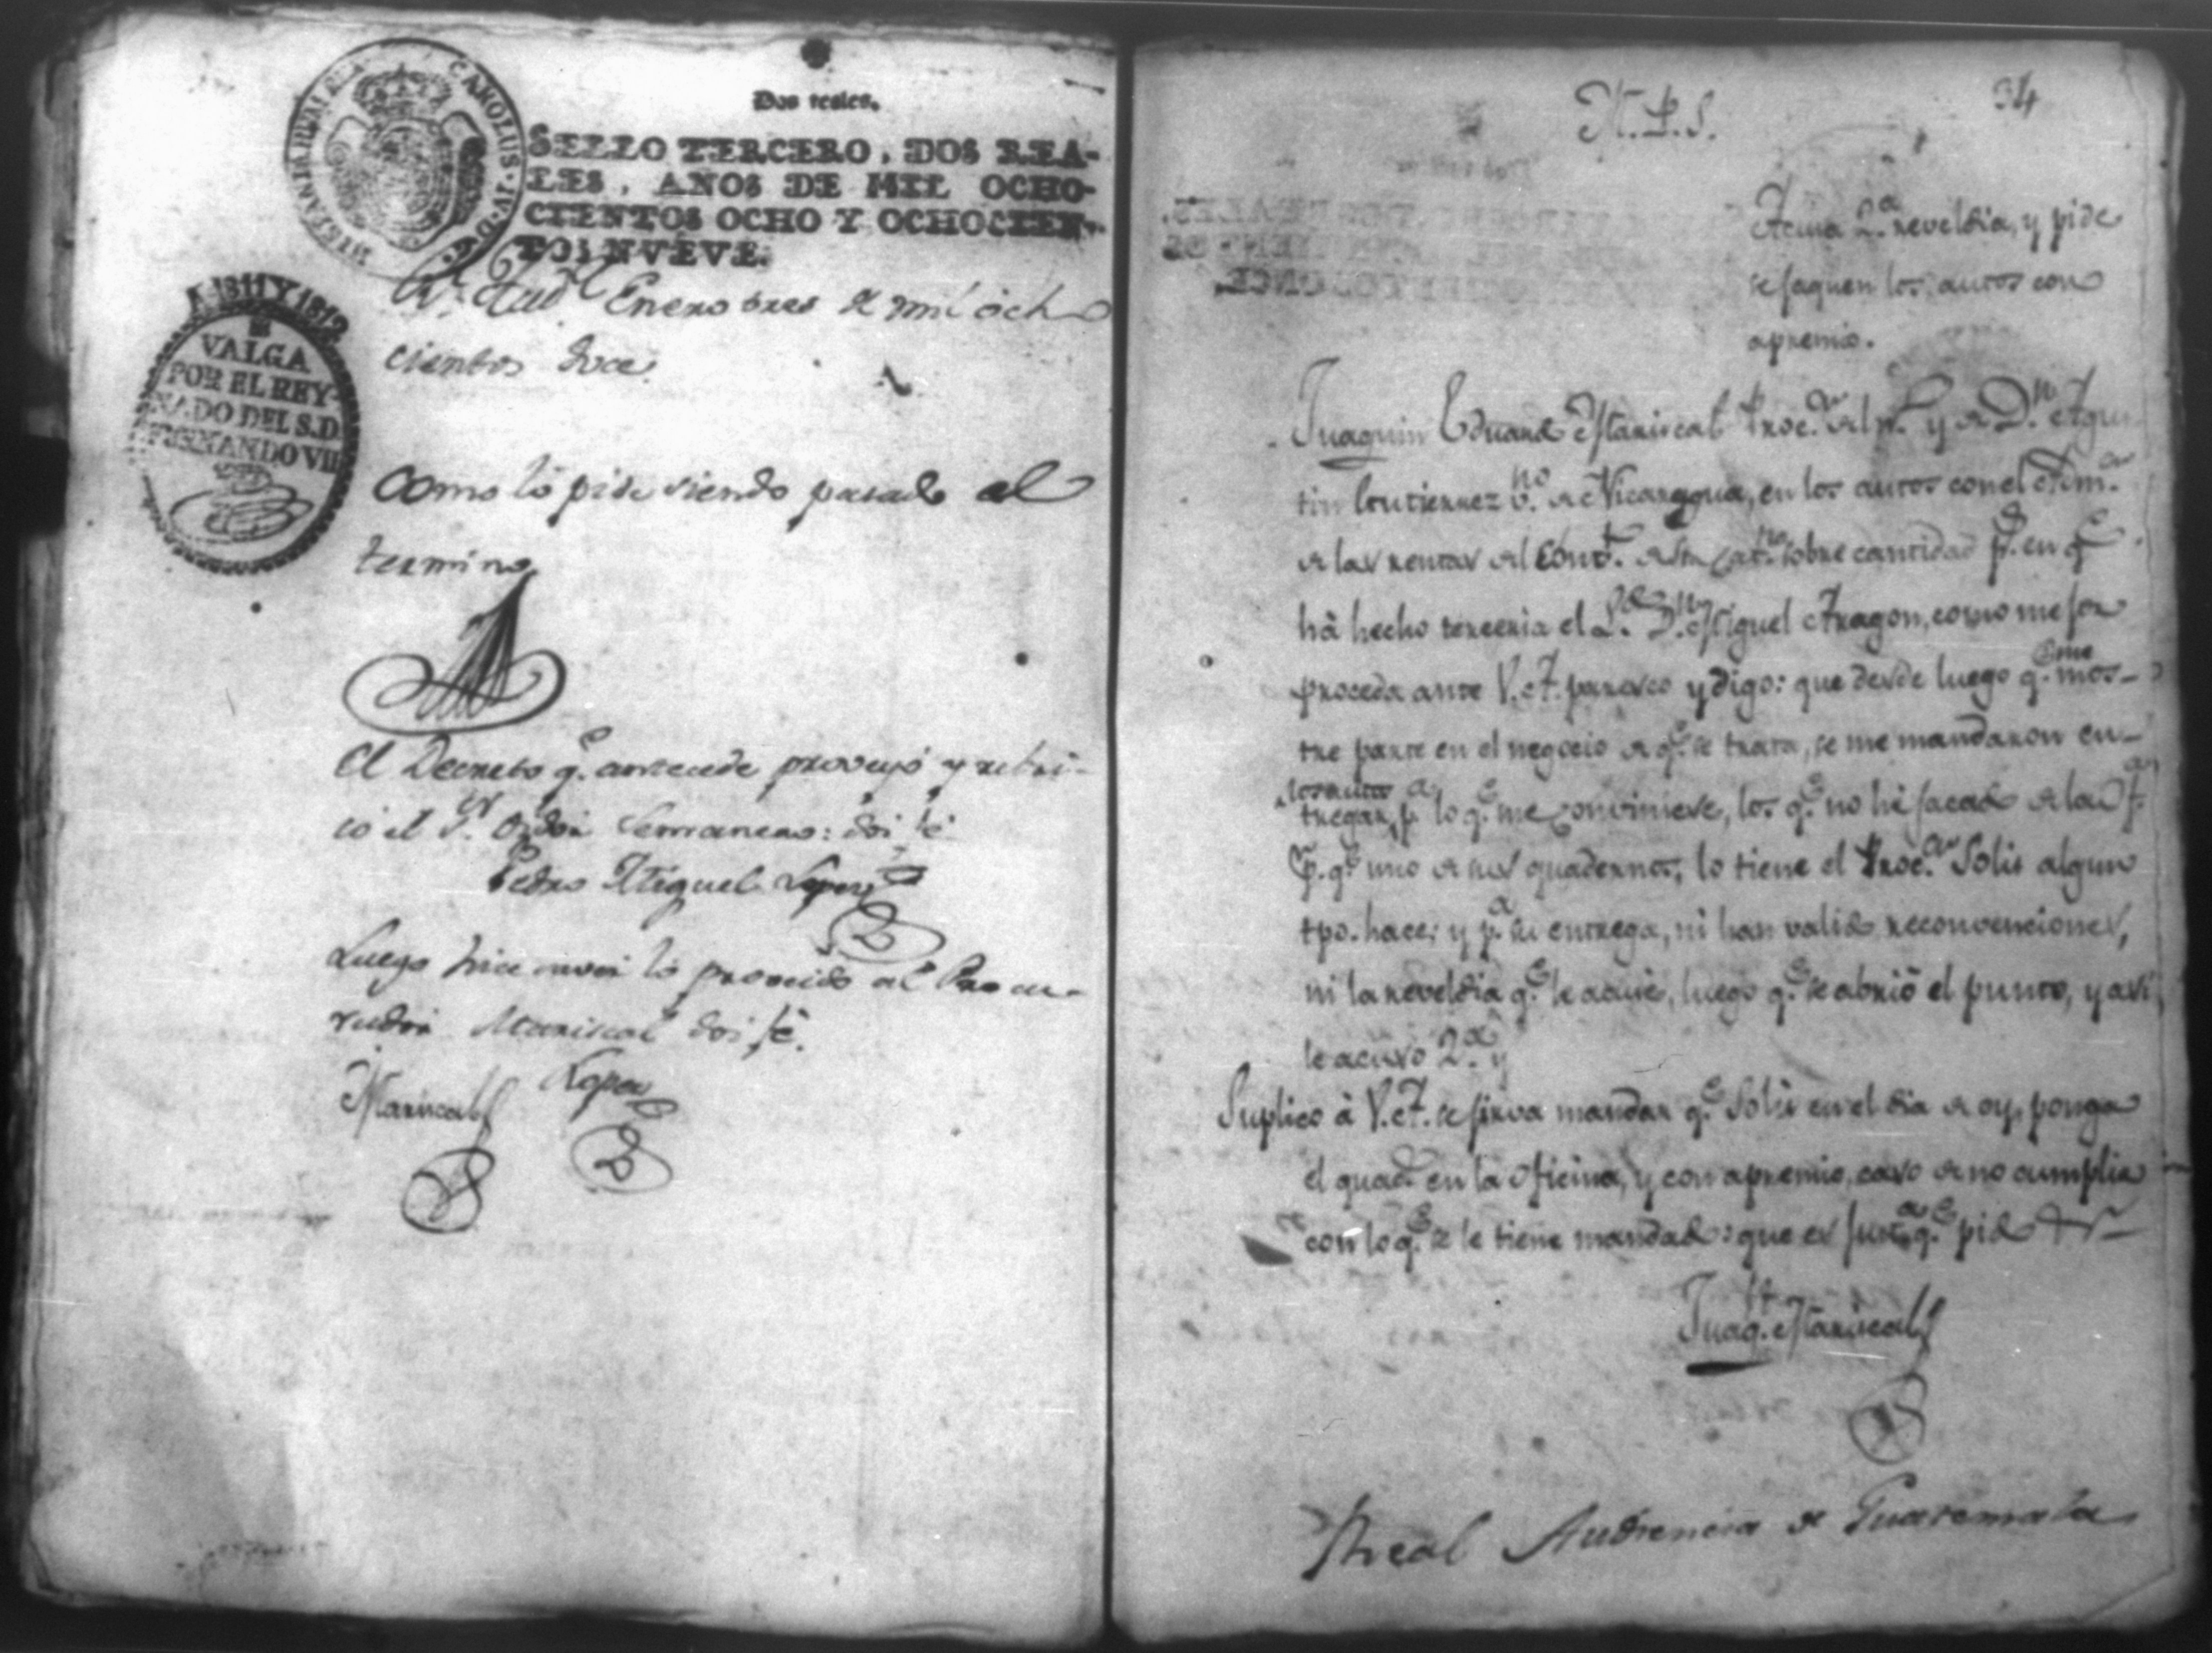 Dos reales.
SELLO TERCERO, DOS REA-
LES, AÑOS DE MIL OCHO-
CIENTOS OCHO Y OCHOCIEN-
TOS NVEVE.
CAROLUS·IV·D·G·
HISPANIAR
A 1811 Y 1812
VALGA
POR EL REY-
NADO DEL S.D.
FERNANDO VII
Rl. Aud.a Enero tres de mil ócho
cientos doce.
Como lo pide siendo pasado el
termino
El Decreto q.e antecede proveyó y rubri-
có el S.or Oydor Semanero: doi fé
Pedro Miguel Lopez
Luego hice saver lo proveido al Procu-
rador Mariscal doi fé.
Mariscal Lopez
M.P.S.
34
Acusa 2.a reveldia, y pide
se saquen los autos con
apremio.
Juaquin Eduardo Mariscal Proc.or del n.o y de D.n Agus
tin Gutierrez v.no de Nicaragua, en los autos con el Adm.or
de las rentas del Conv.to de Sta Cat.na sobre cantidad p.s en q.e
há hecho terceria el L.do D.n Miguel Aragon, como mejor
proceda ante V.A. paresco y digo: que desde luego q.e me mos-
tre parte en el negocio de q.e se trata, se me mandaron en-
tregar, los autos p.a lo q.e me conviniese, los q.e no hé sacado de la
P. q.e uno de sus quadernos, lo tiene el Proc.or Solis algun
tpo. hace; y p.a su entrega, ni han valido reconvenciones,
ni la reveldia q.e le acuse, luego q.e se abrió el punto, y asi
le acuso 2.a y
Suplico à V.A. se sirva mandar q.e Solis en el dia de oy, ponga
el quad.o en la oficina, y con apremio, caso de no cumplir
con lo q.e se le tiene mandado: que es just.a q.e pido
Juaq.n Mariscal
Real Audiencia de Guatemala